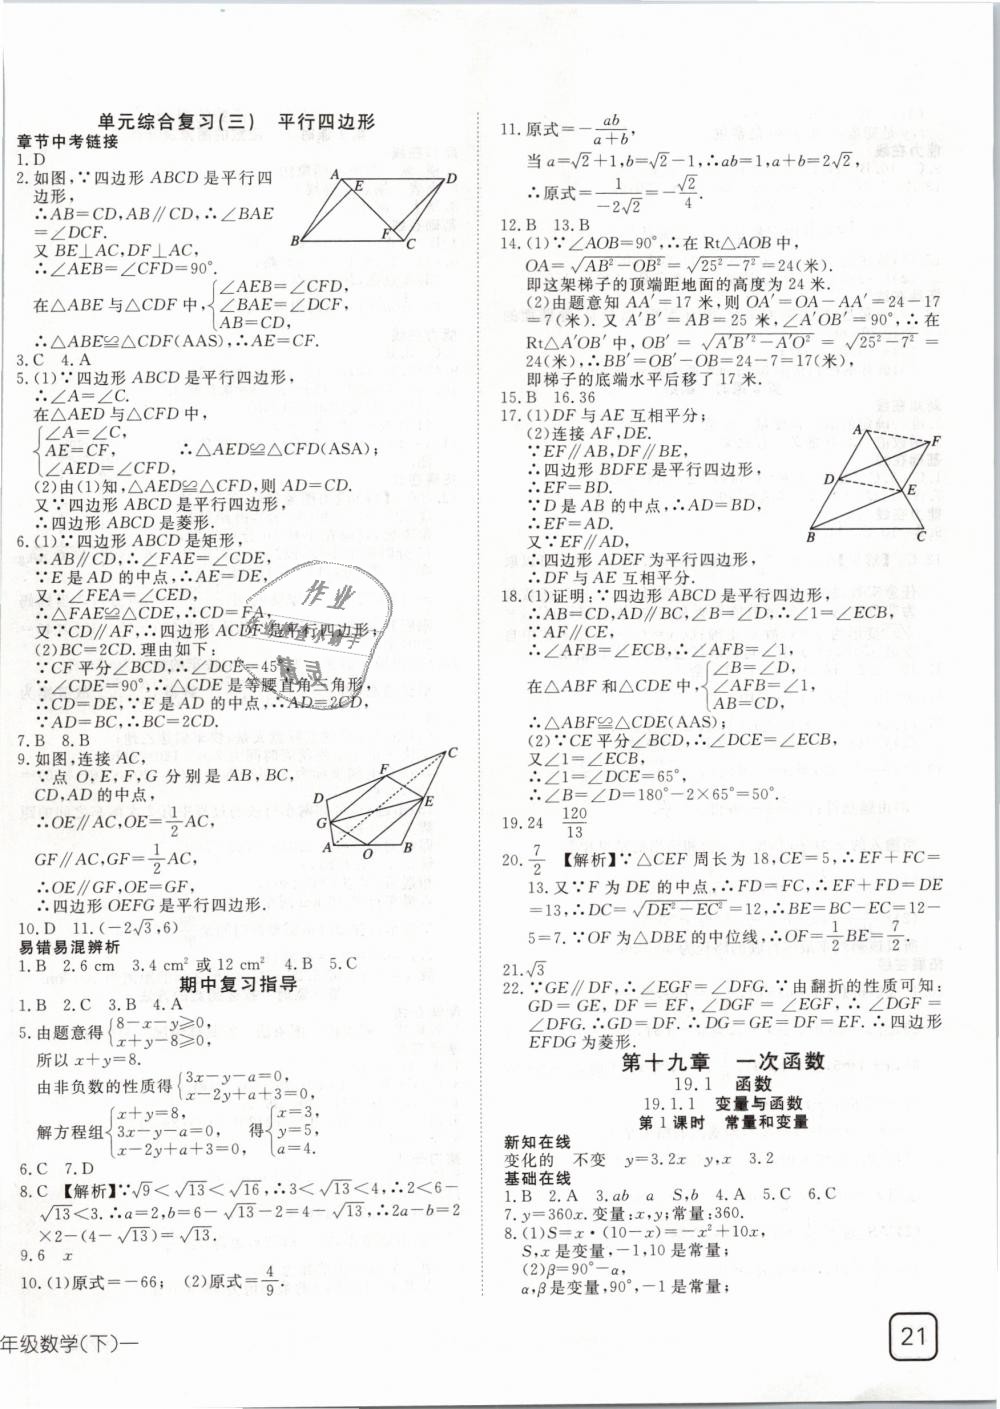 单元综合复习(三)　平行四边形
章节中考链接
1.D
2.如图,∵四边形 ABCD 是平行四
边形,
∴AB=CD,AB∥CD,∴∠BAE
=∠DCF.
又 BE⊥AC,DF⊥AC,
∴∠AEB=∠CFD=90°.
在△ABE 与△CDF 中,{∠AEB=∠CFD,
∠BAE=∠DCF,
AB=CD,
∴△ABE≌△CDF(AAS),∴AE=CF.
A
D
E
F
B
C
3.C　4.A
5.(1)∵四边形 ABCD 是平行四边形,
∴∠A=∠C.
在△AED 与△CFD 中,
{∠A=∠C,
AE=CF,　　∴△AED≌△CFD(ASA);
∠AED=∠CFD,
(2)由(1)知,△AED≌△CFD,则 AD=CD.
又∵四边形 ABCD 是平行四边形,
∴四边形 ABCD 是菱形.
6.(1)∵四边形 ABCD 是矩形,
∴AB∥CD,∴∠FAE=∠CDE,
∵E 是 AD 的中点,∴AE=DE,
又∵∠FEA=∠CED,
∴△FAE≌△CDE,∴CD=FA,
又∵CD∥AF,∴四边形 ACDF 是平行四边形;
(2)BC=2CD.理由如下:
∵CF 平分∠BCD,∴∠DCE=45°,
∵∠CDE=90°,∴△CDE 是等腰直角三角形,
∴CD=DE,∵E 是 AD 的中点,∴AD=2CD,
∵AD=BC,∴BC=2CD.
7.B　8.B
9.如图,连接 AC,
∵点 O,E,F,G 分别是 AB,BC,
CD,AD 的中点,
∴OE∥AC,OE=1/2 AC,
GF∥AC,GF=1/2 AC,
∴OE∥GF,OE=GF,
∴四边形 OEFG 是平行四边形.
C
F
D
E
G
A
O
B
10.D　11.(−2√3,6)
易错易混辨析
1.B　2.6 cm　3.4 cm² 或 12 cm²　4.B　5.C
期中复习指导
1.B　2.C　3.B　4.A
5.由题意得{8−x−y≥0,
x+y−8≥0,
所以 x+y=8.
由非负数的性质得{3x−y−a=0,
x−2y+a+3=0,
解方程组{x+y=8,　　得{x=3,
3x−y−a=0,　　y=5,
x−2y+a+3=0,　　a=4.
6.C　7.D
8.C　【解析】∵√9<√13<√16,∴3<√13<4,∴2<6−
√13<3.∴a=2,b=6−√13−2=4−√13,∴2a−b=2
×2−(4−√13)=√13.
9.6　x
10.(1)原式=−66;　(2)原式=4/9.
11.原式=−ab/(a+b),
当 a=√2+1,b=√2−1,∴ab=1,a+b=2√2,
∴原式=1/(−2√2)=−√2/4.
12.B　13.B
14.(1)∵∠AOB=90°,∴在 Rt△AOB 中,
OA=√(AB²−OB²)=√(25²−7²)=24(米).
即这架梯子的顶端距地面的高度为 24 米.
(2)由题意知 AA′=17 米,则 OA′=OA−AA′=24−17
=7(米).又 A′B′=AB=25 米,∠A′OB′=90°,∴在
Rt△A′OB′中,OB′=√(A′B′²−A′O²)=√(25²−7²)=
24(米),∴BB′=OB′−OB=24−7=17(米),
即梯子的底端水平后移了 17 米.
15.B　16.36
17.(1)DF 与 AE 互相平分;
(2)连接 AF,DE.
∵EF∥AB,DF∥BE,
∴四边形 BDFE 是平行四边形,
∴EF=BD.
∵D 是 AB 的中点,∴AD=BD,
∴EF=AD.
又∵EF∥AD,
∴四边形 ADEF 为平行四边形,
∴DF 与 AE 互相平分.
A
F
D
E
B
C
18.(1)证明:∵四边形 ABCD 是平行四边形,
∴AB=CD,AD∥BC,∠B=∠D,∴∠1=∠ECB,
∵AF∥CE,
∴∠AFB=∠ECB,∴∠AFB=∠1,
在△ABF 和△CDE 中,{∠B=∠D,
∠AFB=∠1,
AB=CD,
∴△ABF≌△CDE(AAS);
(2)∵CE 平分∠BCD,∴∠DCE=∠ECB,
又∠1=∠ECB,
∴∠1=∠DCE=65°,
∴∠B=∠D=180°−2×65°=50°.
19.24　120/13
20.7/2　【解析】∵△CEF 周长为 18,CE=5,∴EF+FC=
13.又∵F 为 DE 的中点,∴FD=FC,∴EF+FD=DE
=13,∴DC=√(DE²−EC²)=12,∴BE=BC−EC=12−
5=7.∵OF 为△DBE 的中位线,∴OF=1/2 BE=7/2.
21.√3
22.∵GE∥DF,∴∠EGF=∠DFG.∵由翻折的性质可知:
GD=GE,DF=EF,∠DGF=∠EGF,∴∠DGF=
∠DFG.∴GD=DF.∴DG=GE=DF=EF.∴四边形
EFDG 为菱形.
第十九章　一次函数
19.1　函数
19.1.1　变量与函数
第 1 课时　常量和变量
新知在线
变化的　不变　y=3.2x　y,x　3.2
基础在线
1.B　2.A　3.ab　a　S,b　4.A　5.C　6.C
7.y=360x.变量:x,y;常量:360.
8.(1)S=x·(10−x)=−x²+10x,
S,x 是变量,−1,10 是常量;
(2)β=90°−α,
α,β是变量,90°,−1 是常量;
年级数学(下)—
21